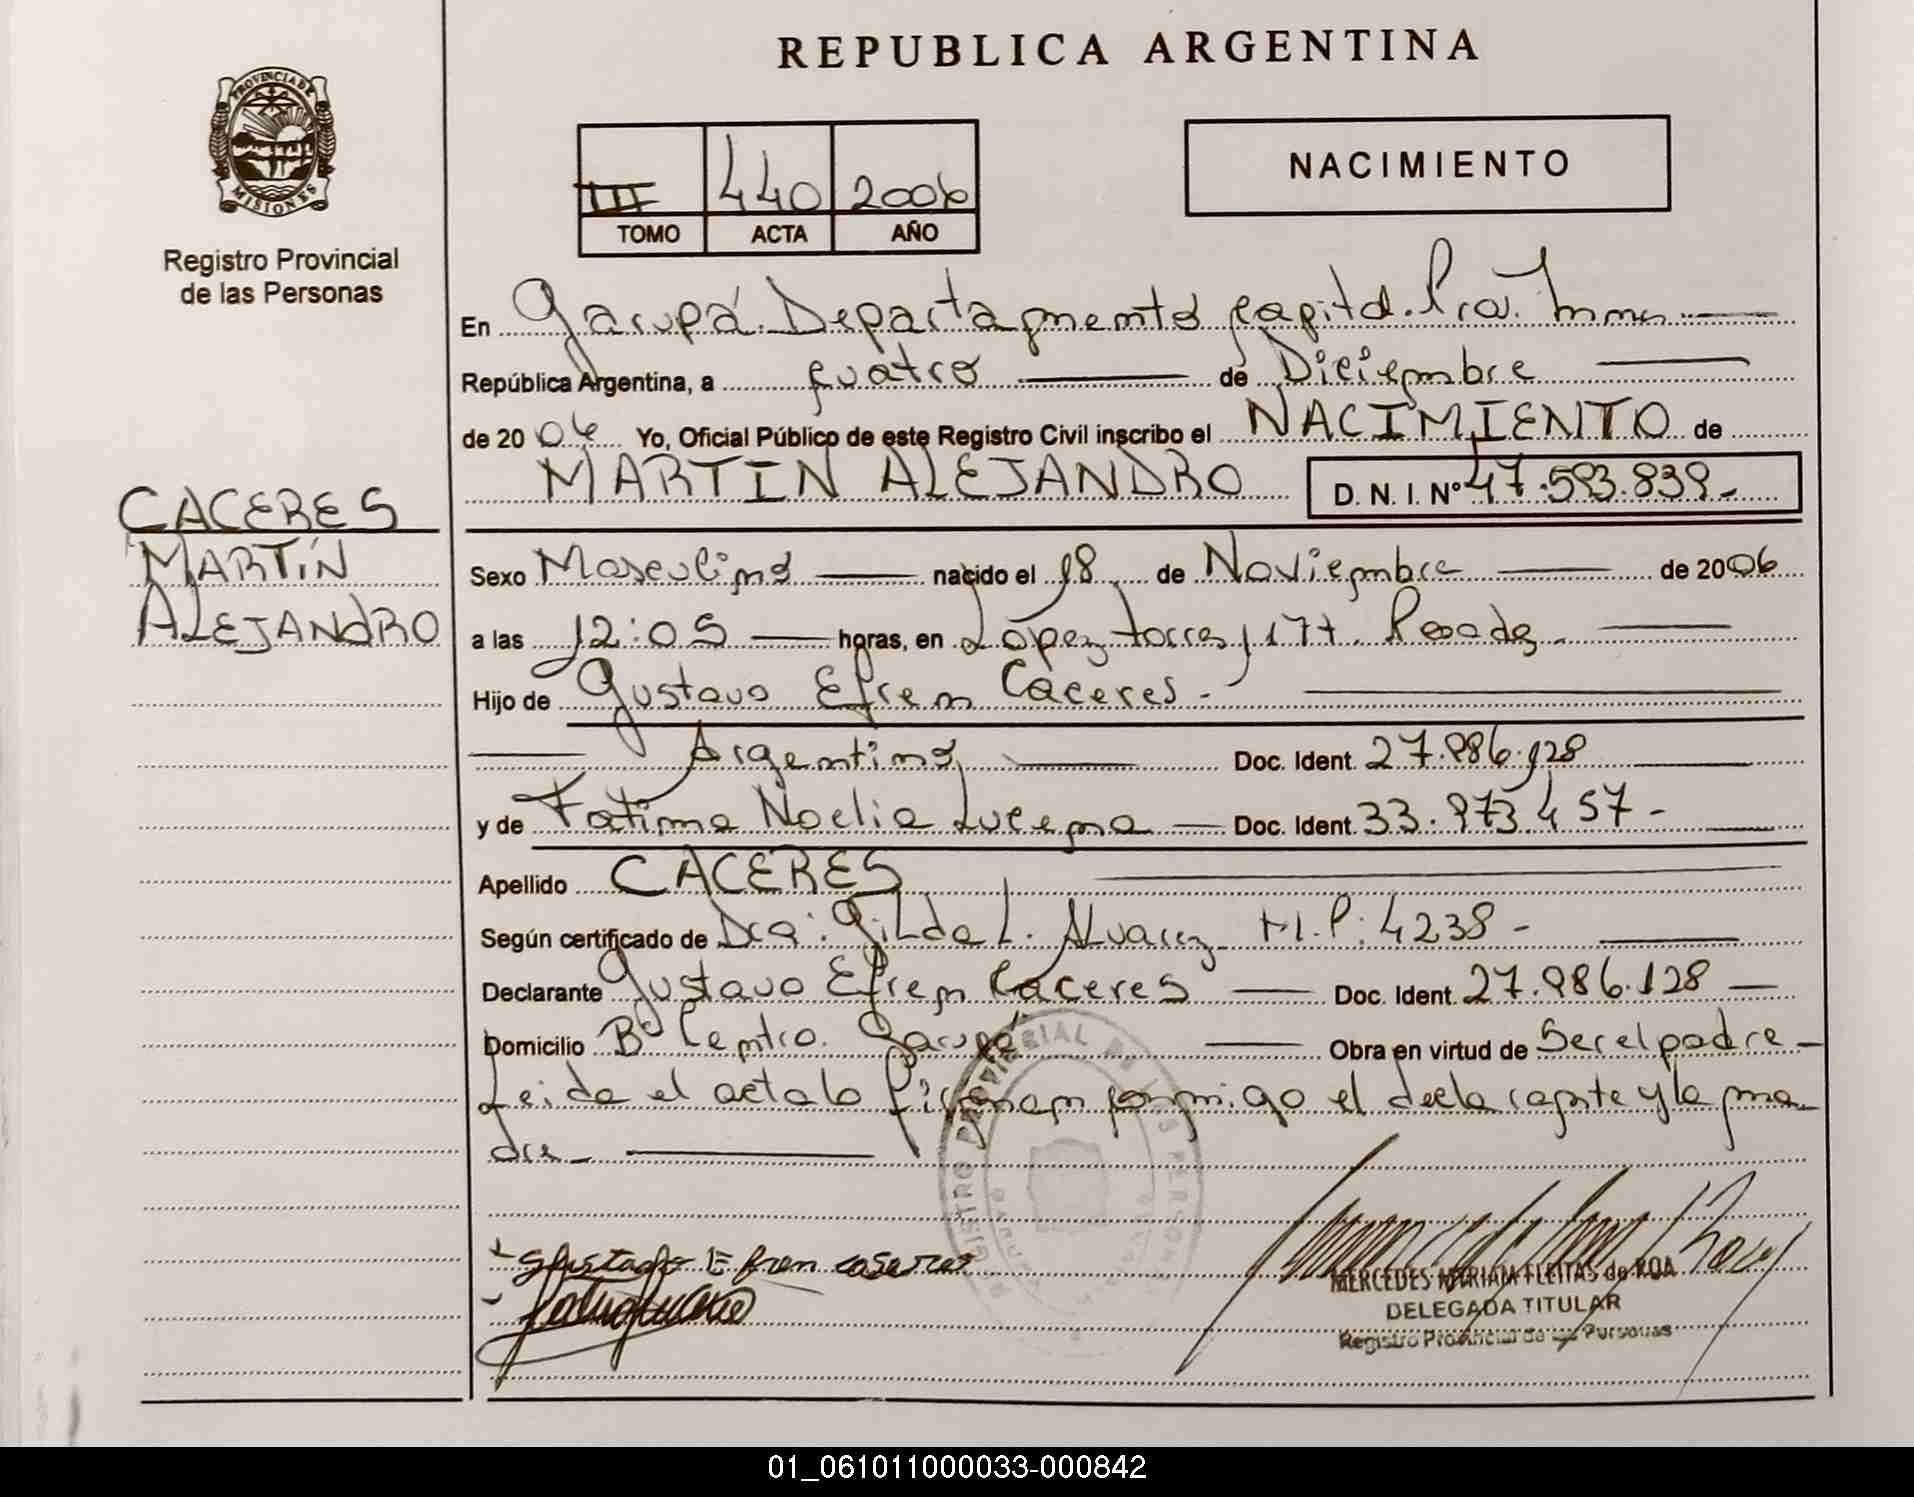 REPUBLICA ARGENTINA
PROVINCIA DE MISIONES
Registro Provincial
de las Personas
III 440 2006
TOMO ACTA AÑO
NACIMIENTO
En Garupá. Departamento Capital. Prov. Mnes
República Argentina, a cuatro de Diciembre
de 2006 Yo, Oficial Público de este Registro Civil inscribo el NACIMIENTO de
MARTIN ALEJANDRO D. N. I. Nº 47.593.839-
CACERES
MARTÍN
ALEJANDRO
Sexo Masculino nacido el 18 de Noviembre de 2006
a las 12:05 horas, en López Torres 1177. Posadas.
Hijo de Gustavo Efrem Caceres-
Argentino Doc. Ident. 27.986.128
y de Fatima Noelia Lucena Doc. Ident. 33.973.457-
Apellido CACERES
Según certificado de Dra: Gilda L. Alvarez M.P: 4238-
Declarante Gustavo Efrem Caceres Doc. Ident. 27.986.128
Domicilio Bº Centro. Garupá Obra en virtud de Ser el padre-
Leida el acta lo firman conmigo el declarante y la ma-
dre-
REGISTRO PROVINCIAL DE LAS PERSONAS
gustabo Efren caseres
MERCEDES MIRIAM FLEITAS de ROA
DELEGADA TITULAR
Registro Provincial de las Personas
01_061011000033-000842